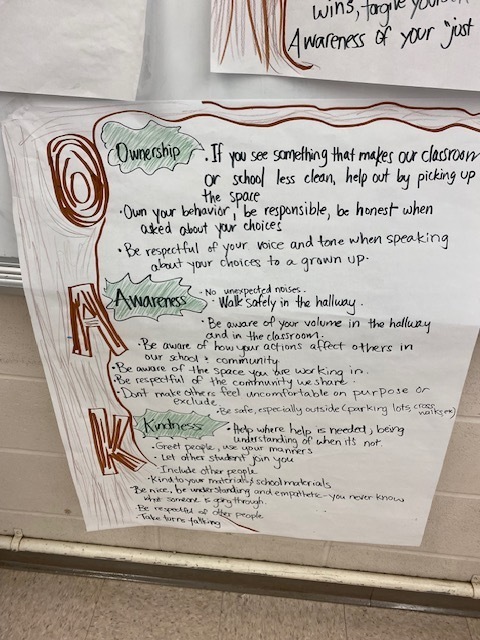 wins, forgive
Awareness of your "just
O
Ownership
• If you see something that makes our classroom
or school less clean, help out by picking up
the space
• Own your behavior, be responsible, be honest when
asked about your choices
• Be respectful of your voice and tone when speaking
about your choices to a grown up.
A
Awareness
• No unexpected noises.
• Walk safely in the hallway.
• Be aware of your volume in the hallway
and in the classroom.
• Be aware of how your actions affect others in
our school & community
• Be aware of the space you are working in.
• Be respectful of the community we share.
• Don't make others feel uncomfortable on purpose or
exclude.
• Be safe, especially outside (parking lots, cross
walks, etc)
K
Kindness
• Help where help is needed, being
understanding of when it's not.
• Greet people, use your manners
• Let other student join you
• Include other people
• Kind to your materials & school materials
• Be nice, be understanding and empathetic - you never know
what someone is going through.
• Be respectful of other people
• Take turns talking